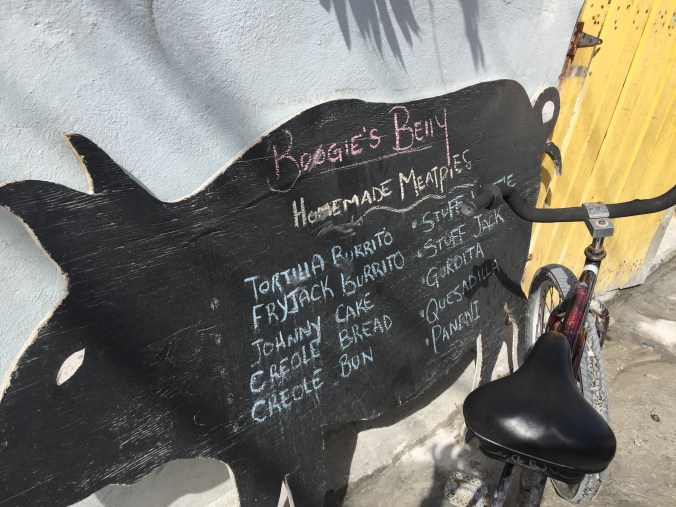 BOOGIE'S BELLY
HOMEMADE MEATPIES
TORTILLA BURRITO
FRYJACK BURRITO
JOHNNY CAKE
CREOLE BREAD
CREOLE BUN
• STUFF
• STUFF JACK
• GORDITA
• QUESADILLA
• PANINI